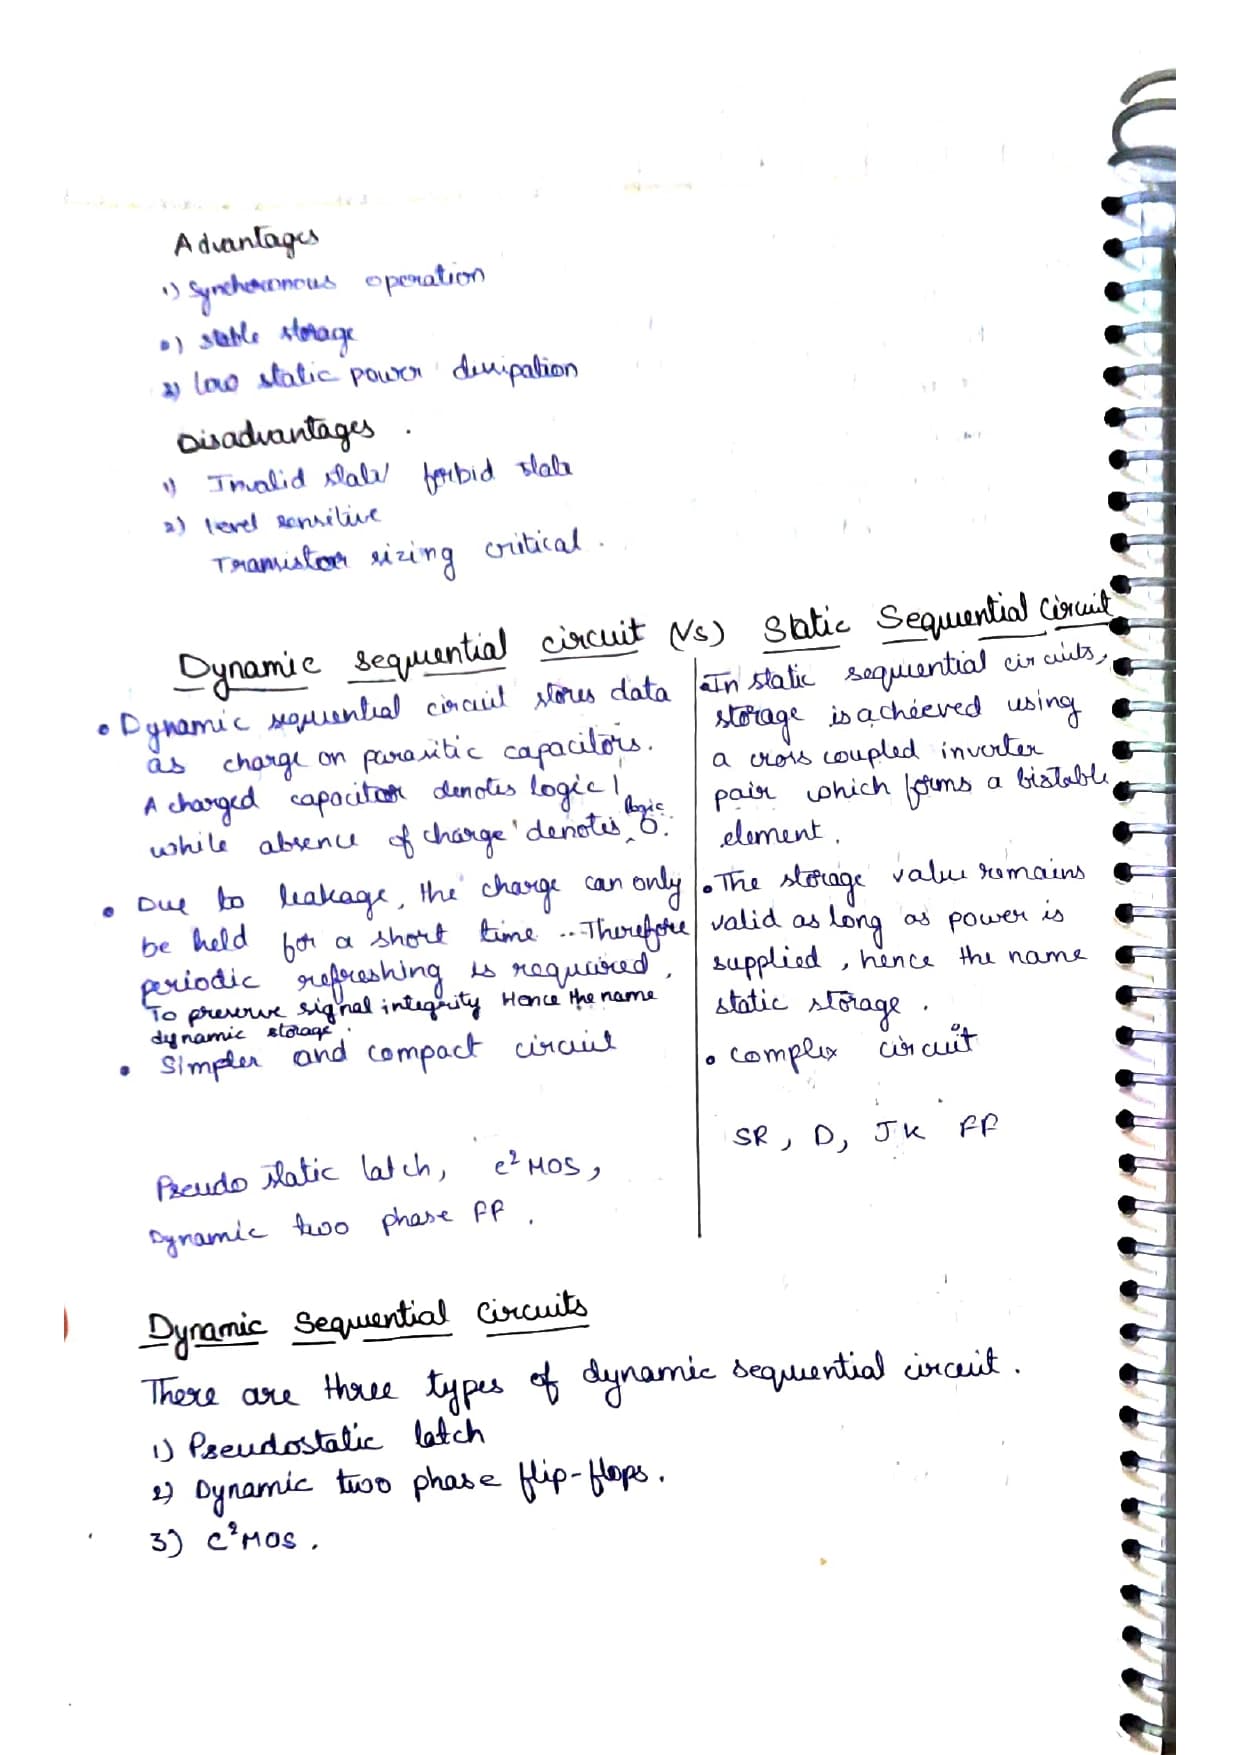 Advantages
1) Syncheronous operation
2) stable storage
3) low static power dissipation
Disadvantages.
1) Invalid state/ forbid state
2) level sensitive
Transistor sizing critical.
Dynamic sequential circuit (Vs) Static Sequential Circuit
• Dynamic sequential circuit stores data
as charge on parasitic capacitors.
A charged capacitor denotes logic 1
while absence of charge denotes logic 0.
• Due to leakage, the charge can only
be held for a short time .. Therefore
periodic refreshing is required.
To preserve signal integrity Hence the name
dynamic storage.
• Simpler and compact circuit
Pseudo static latch, C²MOS,
Dynamic two phase FF.
• In static sequential circuits,
storage is acheeved using
a cross coupled inverter
pair which forms a bistable
element.
• The storage value remains
valid as long as power is
supplied, hence the name
static storage.
• complex circuit
SR, D, JK FF
Dynamic Sequential Circuits
There are three types of dynamic sequential circuit.
1) Pseudostatic latch
2) Dynamic two phase flip-flops.
3) C²MOS.